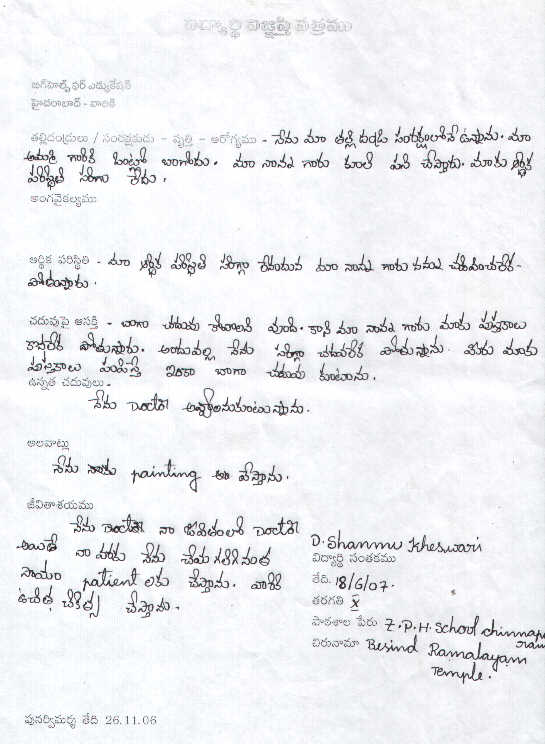 విద్యార్థి విజ్ఞప్తి పత్రము
బిగ్‌హెల్ప్ ఫర్ ఎడ్యుకేషన్
హైదరాబాద్ - వారికి
తల్లిదండ్రులు / సంరక్షకుడు - వృత్తి - ఆరోగ్యము - నేను మా తల్లి దండ్రి సంరక్షణలోనే ఉన్నాను. మా
అమ్మ గారికి ఒంట్లో బాగోదు. మా నాన్న గారు కూలి పని చేస్తారు. మాకు ఆర్థిక
పరిస్థితి సరిగా లేదు.
అంగవైకల్యము
ఆర్థిక పరిస్థితి - మా ఆర్థిక పరిస్థితి సరిగ్గా లేనందున మా నాన్న గారు నన్ను చదివించలేక-
పోతున్నారు.
చదువుపై ఆసక్తి - బాగా చదువు కోవాలని వుంది. కాని మా నాన్న గారు మాకు పుస్తకాలు
కొనలేక పోతున్నారు. అందువల్ల నేను సరిగ్గా చదవలేక పోతున్నాను. మీరు మాకు
పుస్తకాలు పంపిస్తే ఇంకా బాగా చదువు కుంటాను.
ఉన్నత చదువులు-
నేను Doctor అవ్వాలనుకుంటున్నాను.
అలవాట్లు
నేను painting వేస్తాను.
జీవితాశయము
నేను నా జీవితంలో Doctor
అయితే నా వంతు నేను చేయ గలిగినంత
సాయం patient లకు చేస్తాను. వారికి
ఉచిత చికిత్స చేస్తాను.
D. Shanmu Kheswari
విద్యార్థి సంతకము
తేది. 18/6/07.
తరగతి X
పాఠశాల పేరు Z.P.H. School Chinnapu
ram
చిరునామా Besind Ramalayam
Temple.
పునర్విమర్శ తేది 26.11.06